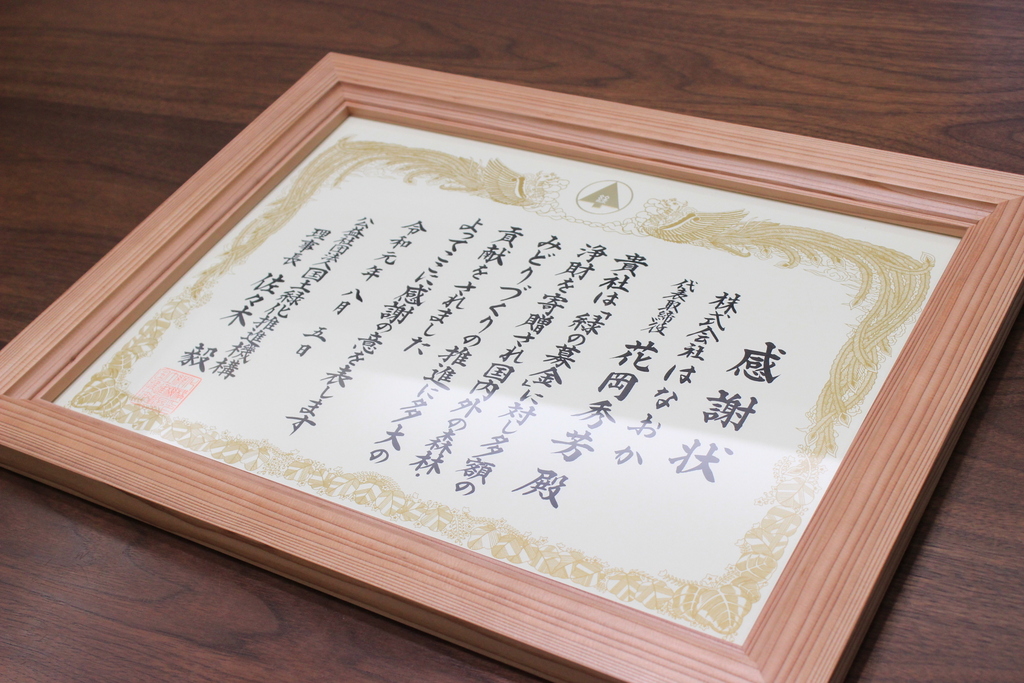 感謝状
株式会社はなおか
代表取締役 花岡秀芳 殿
貴社は「緑の募金」に対し多額の
浄財を寄贈され国内外の森林・
みどりづくりの推進に多大の
貢献をされました
よってここに感謝の意を表します
令和元年八月五日
公益社団法人国土緑化推進機構
理事長 佐々木 毅